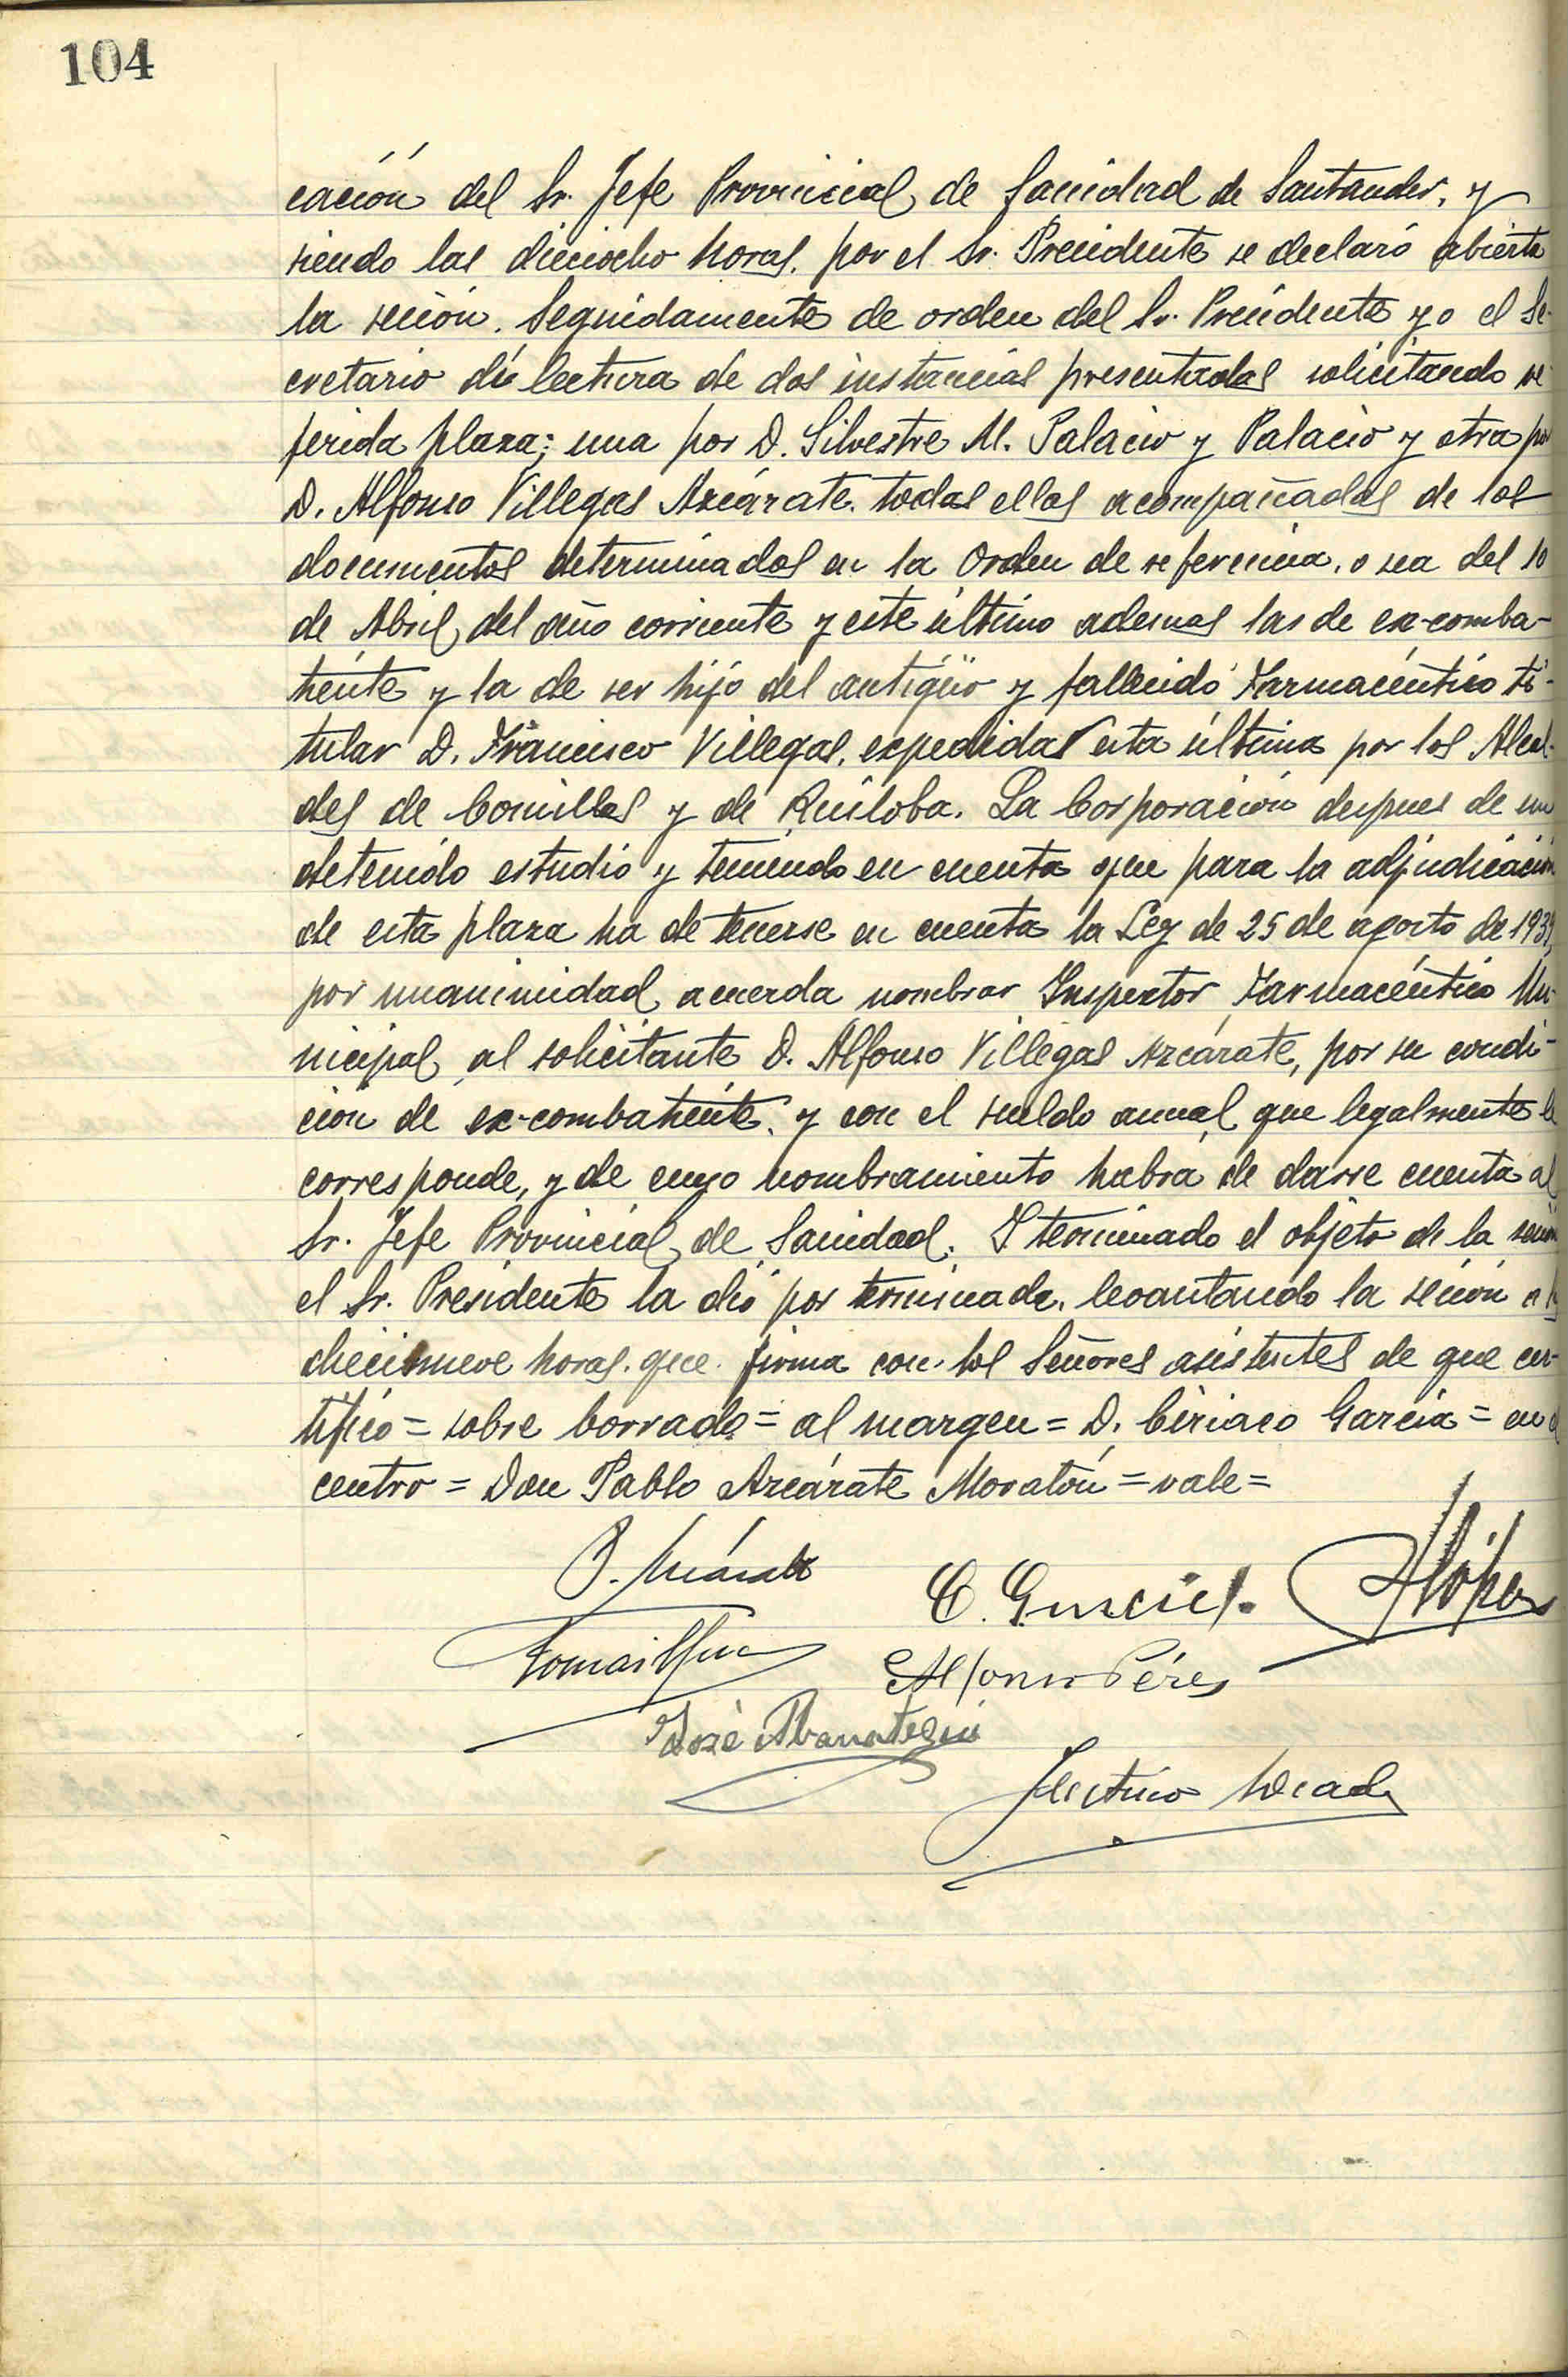 104
cación del Sr. Jefe Provincial de Sanidad de Santander, y
siendo las dieciocho horas, por el Sr. Presidente se declaró abierta
la sesión. Seguidamente de orden del Sr. Presidente yo el Se-
cretario dí lectura de dos instancias presentadas solicitando re-
ferida plaza; una por D. Silvestre M. Palacio y Palacio y otra por
D. Alfonso Villegas Azcárate. todas ellas acompañadas de los
documentos determinados en la Orden de referencia, o sea del 10
de Abril del año corriente y este último ademas las de ex-comba-
tiente y la de ser hijo del antigüo y fallecido Farmacéutico ti-
tular D. Francisco Villegas, expedida esta última por los Alcal-
des de Comillas y de Ruiloba. La Corporación despues de un
detenido estudio y teniendo en cuenta que para la adjudicación
de esta plaza ha de tenerse en cuenta la Ley de 25 de agosto de 1939,
por unanimidad acuerda nombrar Inspector Farmacéutico Mu-
nicipal al solicitante D. Alfonso Villegas Azcárate, por su condi-
ción de ex-combatiente, y con el sueldo anual que legalmente le
corresponde, y de cuyo nombramiento habrá de darse cuenta al
Sr. Jefe Provincial de Sanidad. Y terminado el objeto de la sesión
el Sr. Presidente la dió por terminada, levantando la sesión a las
diecinueve horas. que firma con los Señores asistentes de que cer-
tifico = sobre borrado = al margen = D. Ciriaco García = en el
centro = Don Pablo Azcárate Moratón = vale =
P. Azcárate
C. García
López
Tomás
Alfonso Pérez
José